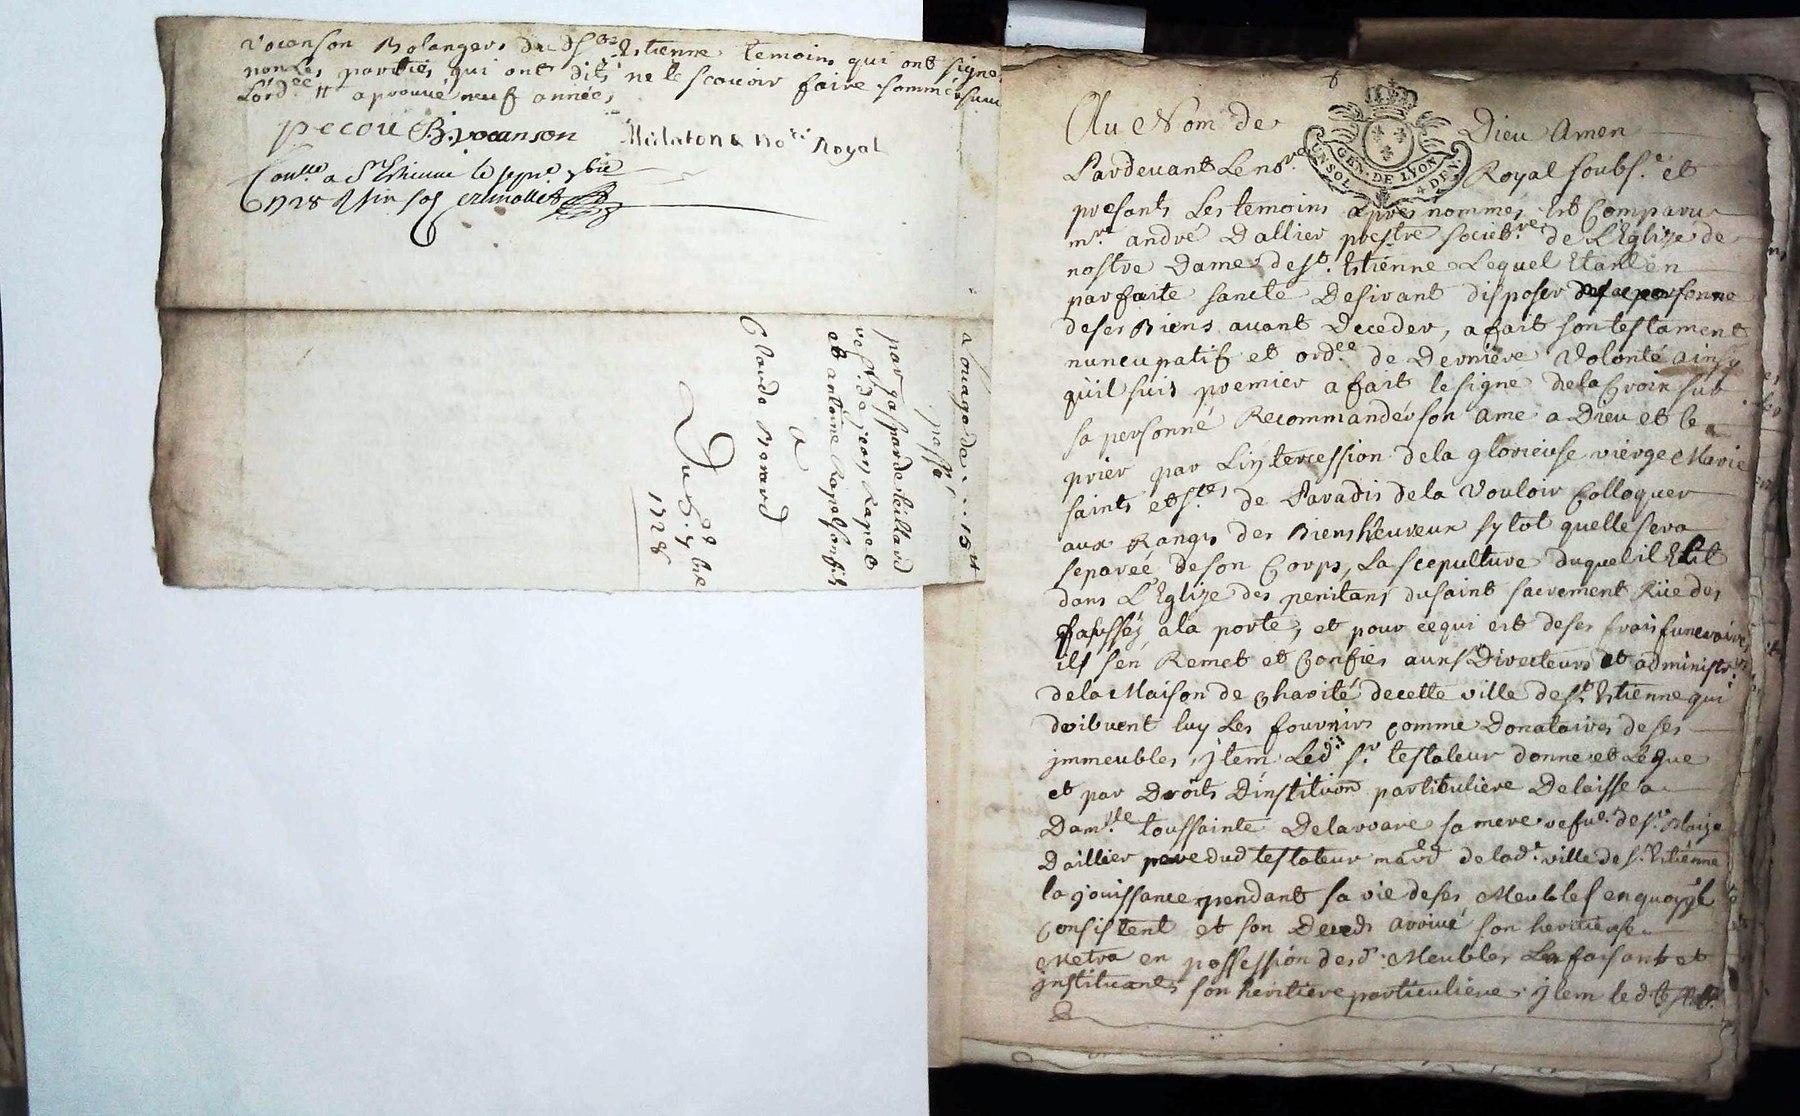 vocanson Bolangers du d. St. Estienne temoins qui ont signe
non Les parties qui ont dits ne le scavoir faire sommés suiv
Lord.ce aprouvé neuf années
pecou B. vocanson no.re Royal
Con.lle a St Estienne le sept
1728
alouage de 15
passé
par gasparde
vefve de jean Rapet
et antoine Rapet son fils
a
Claude Berard
Du 8. 7bre
1728
Au Nom de Dieu Amen
Pardevant Le no.re Royal soubs.e et
presants Les temoins apres nommés Est Comparu
m.re andré Dallier prestre societ.re de L'Eglize de
nostre Dame de st. Estienne Lequel Etant en
parfaite sancté Desirant disposer
de ses Biens avant Deceder, a fait son testament
nuncupatif et ord.ce de Derniere Volonté ainsy
qu'il suis premier a fait le signe de la Croix sur
sa personne Recommander son ame a Dieu et le
prier par L'intercession de la glorieuse vierge Marie
saints et s.tes de Paradis de la Vouloir Colloquer
aux Rangs des Biensheureux sytot quelle sera
separée de son Corps, La scepulture duquel il Elit
dans L'Eglize des penitans du saint sacrement Rüe des
faussés a la porte, et pour ce qui est de ses frais funeraires
ils s'en Remet et Confies aux s.rs Directeurs et administ.rs
de la Maison de Charité de cette ville de st. Estienne qui
doibvent luy Les fournirs comme Donataires de ses
immeubles, jtem Led. s.r testateur donne et Legue
et par Droits D'institution particuliere Delaisse a
Dam.lle toussainte Delarvare sa mere vefve de s.r Blaize
Daillier pere dud testateur mard de lad. ville de s.t Estienne
la jouissance pendant sa vie de ses Meubles en quoy jl
Consistent et son Deceds arrivé son heritiere
Metra en possession desd. Meubles La faisant et
jnstituants son heritiere particuliere, jtem led. test.r
GEN. DE LYON
UN SOL 4 DEN.